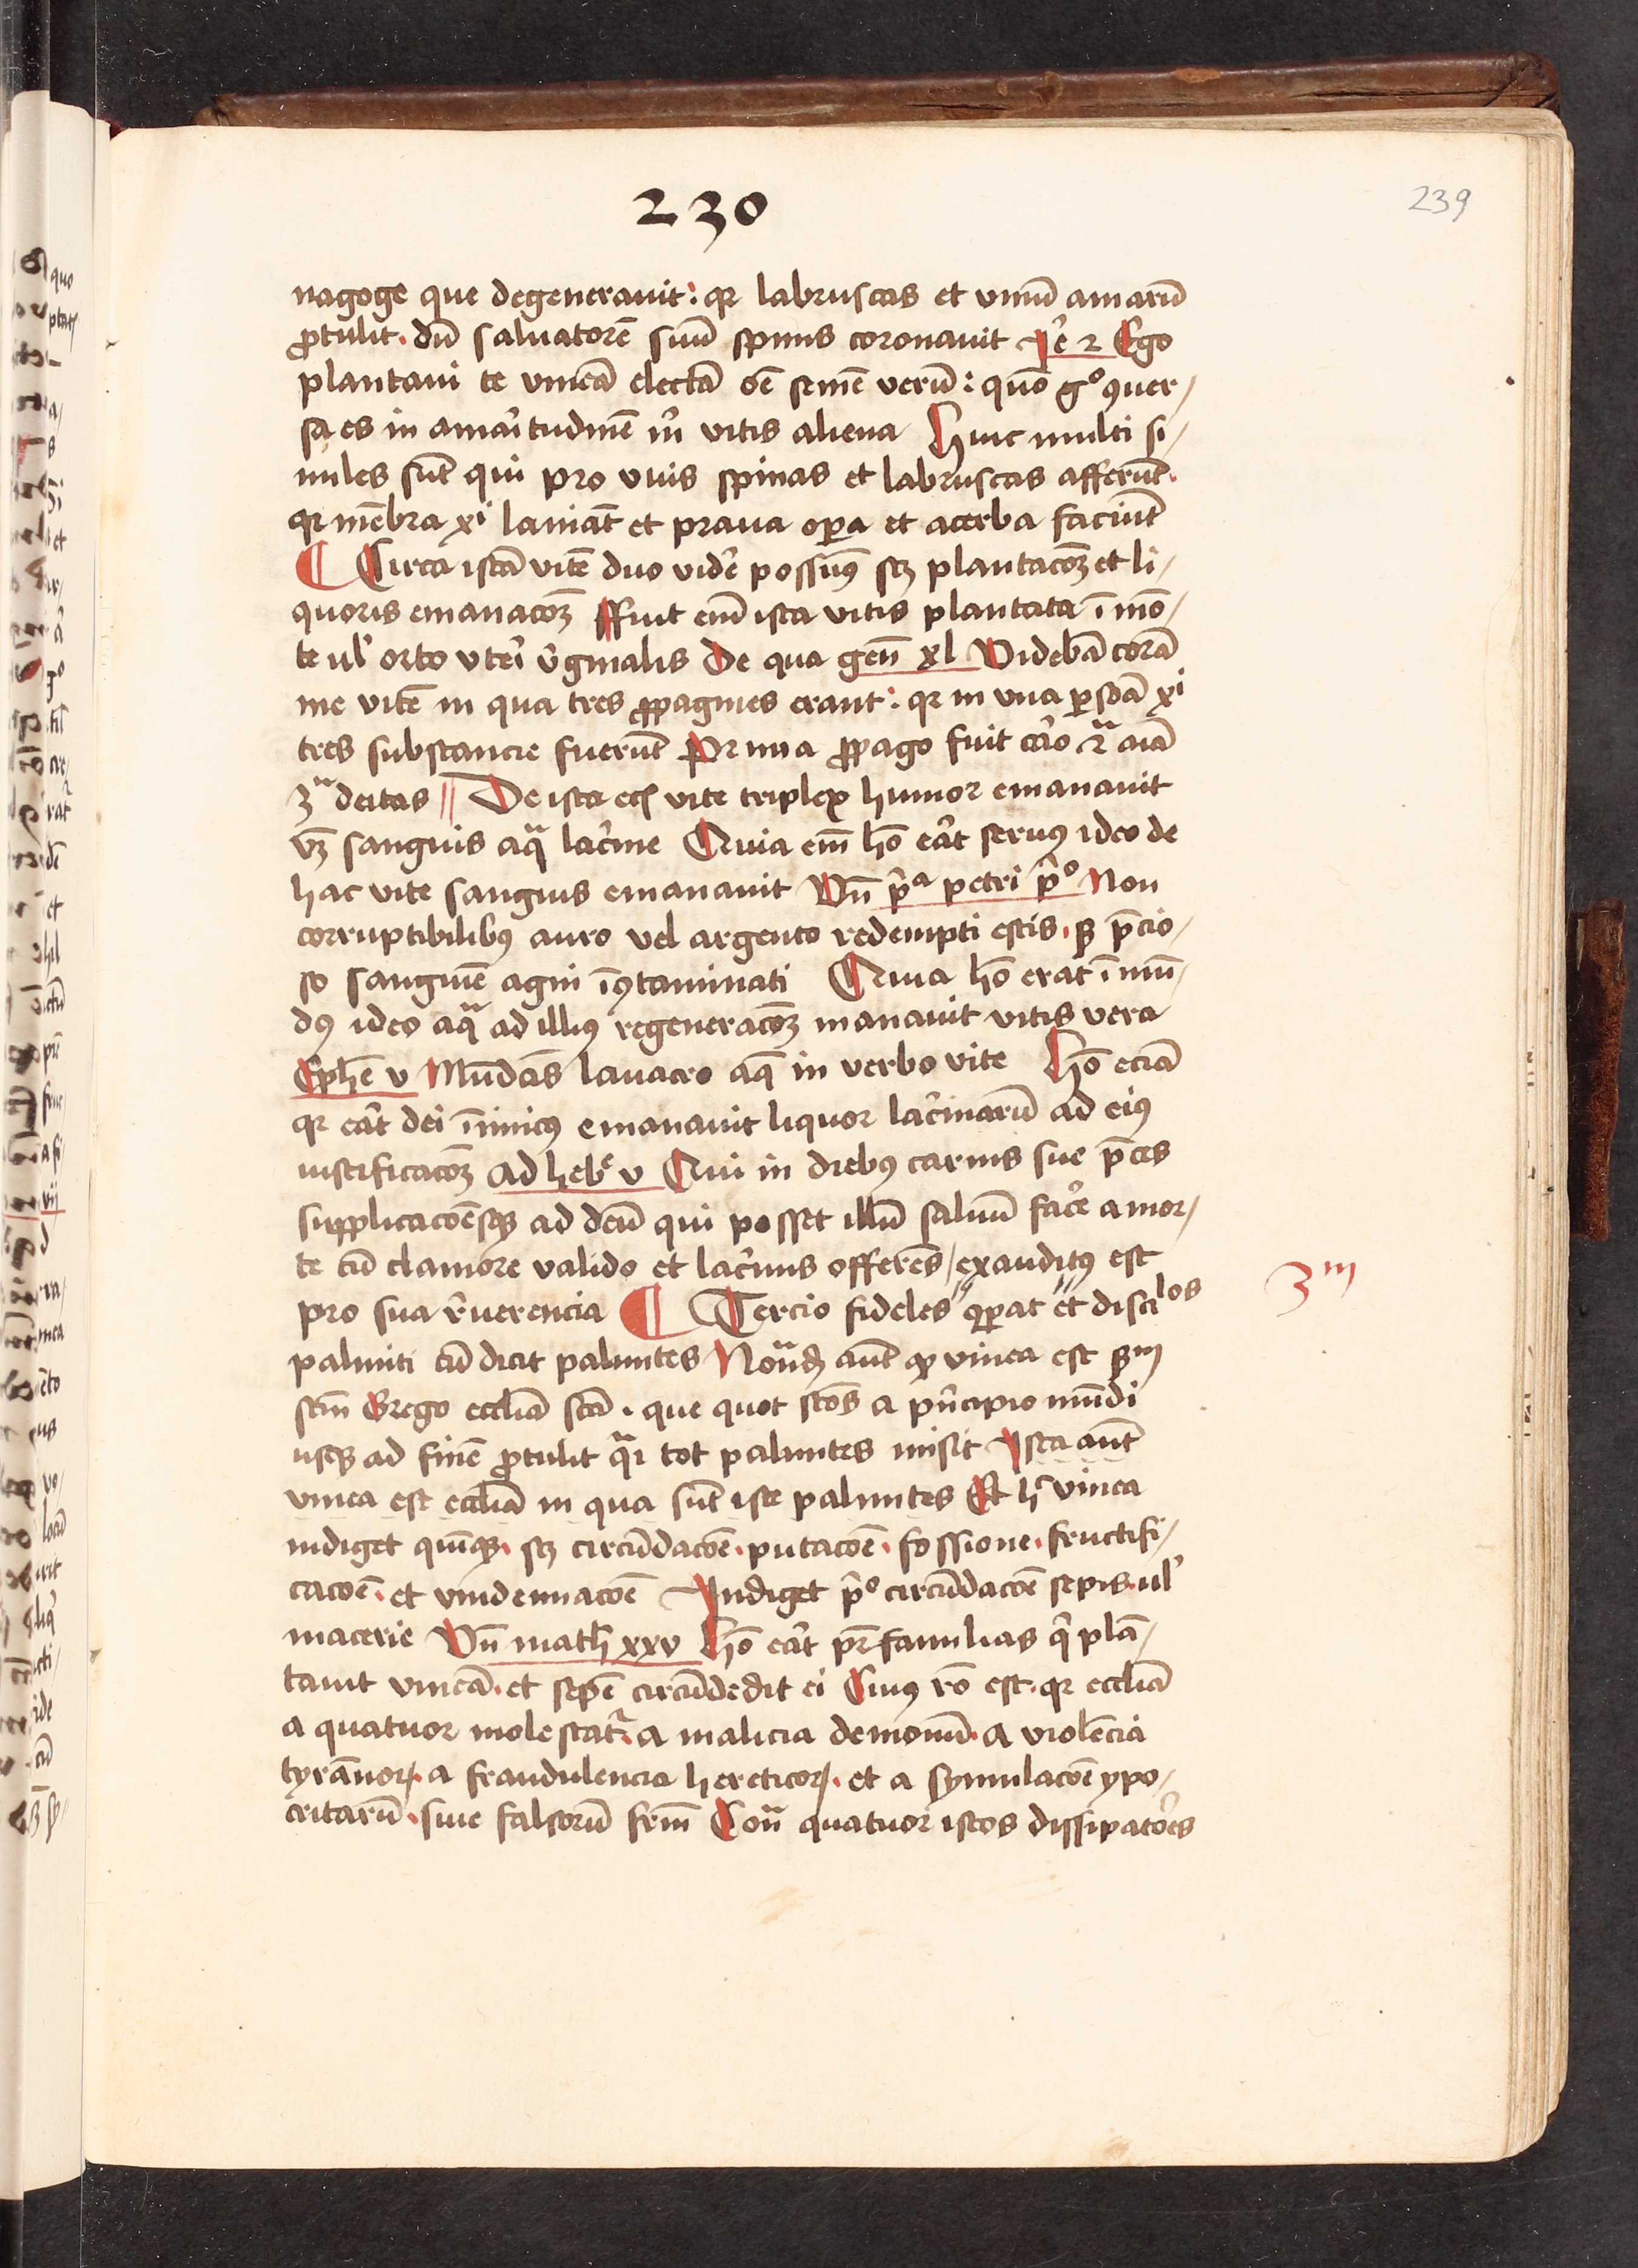 230
239
nagoge que degenerauit: qr labruscas et vinū amarū
ꝓtulit. dū saluatorē suū spinis coronauit Je͛ 2 Ego
plantaui te vineā electā oē semē verū: quō gº ꝯuer/
sa es in amaritudinē m͛ vitis aliena Huic multi si/
miles sūt qui pro vuis spinas et labruscas afferūt.
qr mēbra xi laniāt et praua oꝑa et acerba faciūt
¶ Circa istā vitē duo vide͛ possumꝰ scꝫ plantacōꝫ et li/
quoris emanacōꝫ ffuit em̄ ista vitis plantata ī mō/
te ul' orto vteri v͛ginalis De qua gen̄ xl Videbā corā
me vitē in qua tres ꝓpagines erant: qr in vna ꝑsōa xi
tres substancie fuerūt Prima ꝓpago fuit caro 2ª aīa
3ª deitas || De ista ecī vite triplex humor emanauit
vꝫ sanguis aqª lac͛me Quia em̄ hō eāt seruꝰ ideo de
hac vite sanguis emanauit Vn̄ p͛ª petri p͛º Non
corruptibilibꝰ auro vel argento redempti estis. sꝫ p̄cio/
so sanguinē agni īꝯtaminati Quia hō erat ī mū/
dꝰ ideo aqª ad illiꝰ regeneracōꝫ manauit vitis vera
Ephē v Mūdās lauacro aqª in verbo vite Hō eciā
qr eāt dei īimicꝰ emanauit liquor lac͛marū ad eiꝰ
iustificacōꝫ ad heb͛ v Qui in diebꝰ carnis sue p̄ces
supplicacōesqꝫ ad deū qui posset illū saluū face͛ a mor/
te cū clamore valido et lac͛mis offerēs/exauditꝰ est
pro sua r͛uerencia ¶ Tercio fideles "qꝑat "et disci͏los
3m
palmiti cū dicit palmites Notªdꝫ aūt qꝫ vinea est sm
scm̄ Grego eccliā scā. que quot scōs a p͛ncipio mūdi
usqꝫ ad finē ꝓtulit qªi tot palmites misit Ista aūt
vinea est ecclīa in qua sūt iste palmites Et h͛ vinea
indiget quīqꝫ. scꝫ circūdacōe. putacōe. fossione. fructifi/
cacōe. et vindemiacōe Indiget p͛º circūdacōe sepis. ul'
macerie Vn̄ math xxv Hō eāt pr̄familias q͛ plā/
tauit vineā. et sepē circūdedit ei Cuiꝰ rō est. qr eccliā
a quatuor molestat᷑. a malicia demonū. a violēcia
tyrānoꝝ. a fraudulencia hereticoꝝ. et a symulacōe ypo/
critarū. siue falsorū frm̄ Conª quatuor istos dissipatores